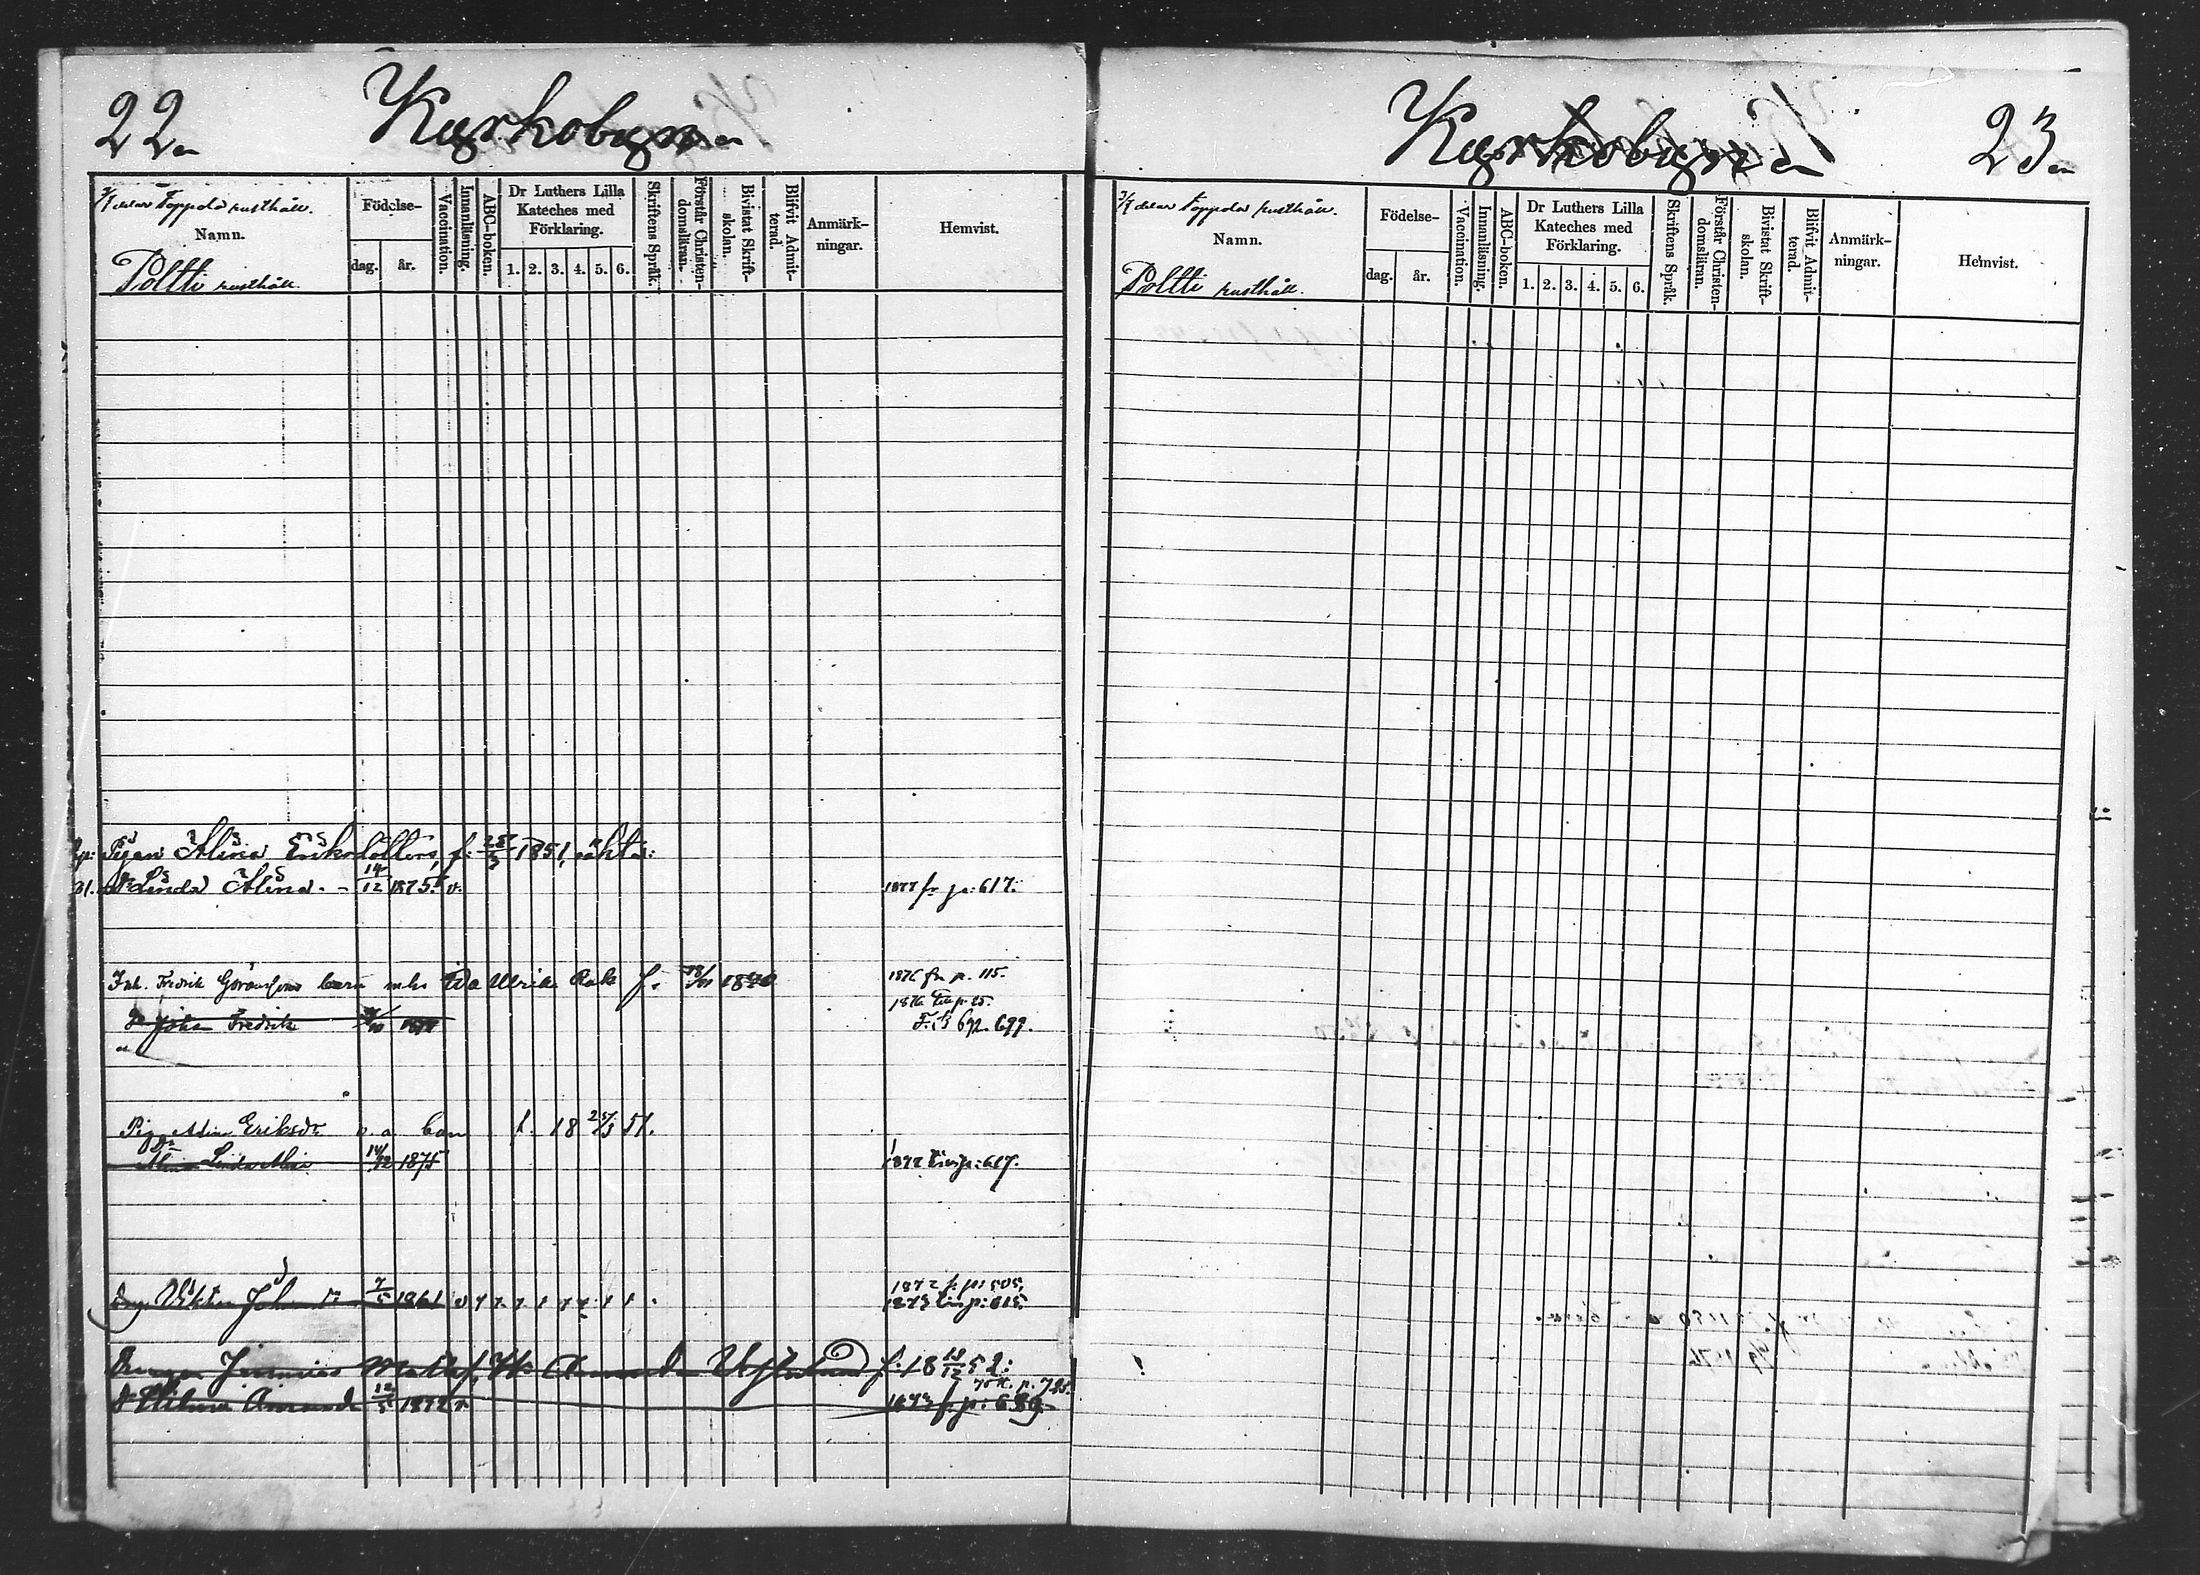 22
Kurkobyn
Toppola rusthåll.
Namn.
Poltti rusthåll.
Födelse-
dag. år.
Vaccination.
Innanläsning.
ABC-boken.
Dr Luthers Lilla
Kateches med
Förklaring.
1. 2. 3. 4. 5. 6.
Skriftens Språk.
Förstår Christen-
domsläran.
Bivistat Skrift-
skolan.
Blifvit Admit-
terad.
Anmärk-
ningar.
Hemvist.
Pigan Alina Eriksdotters, f: 25/3 1851,
Linda Alina. 14/12 1875. v. 1877 fr. pa: 617.
Inh. Fredrik Göranssons barn Ida Ulrika f. 1876 fr. p. 115.
1876
Johan Fredrik p. 699.
Pig. Alina Eriksdr o. ä. barn f. 18 25/3 51.
Linda 14/12 1875 p: 617.
Viktor Johan 7/5 1861 1872 f. p: 505.
1873 p: 615.
Drengen Jeremias Amanda f: 18 52:
p. 725.
Hilma Amanda 12/5 1872 1873 f. p: 689
23
Kurkobyn
Toppola rusthåll.
Namn.
Poltti rusthåll.
Födelse-
dag. år.
Vaccination.
Innanläsning.
ABC-boken.
Dr Luthers Lilla
Kateches med
Förklaring.
1. 2. 3. 4. 5. 6.
Skriftens Språk.
Förstår Christen-
domsläran.
Bivistat Skrift-
skolan.
Blifvit Admit-
terad.
Anmärk-
ningar.
Hemvist.